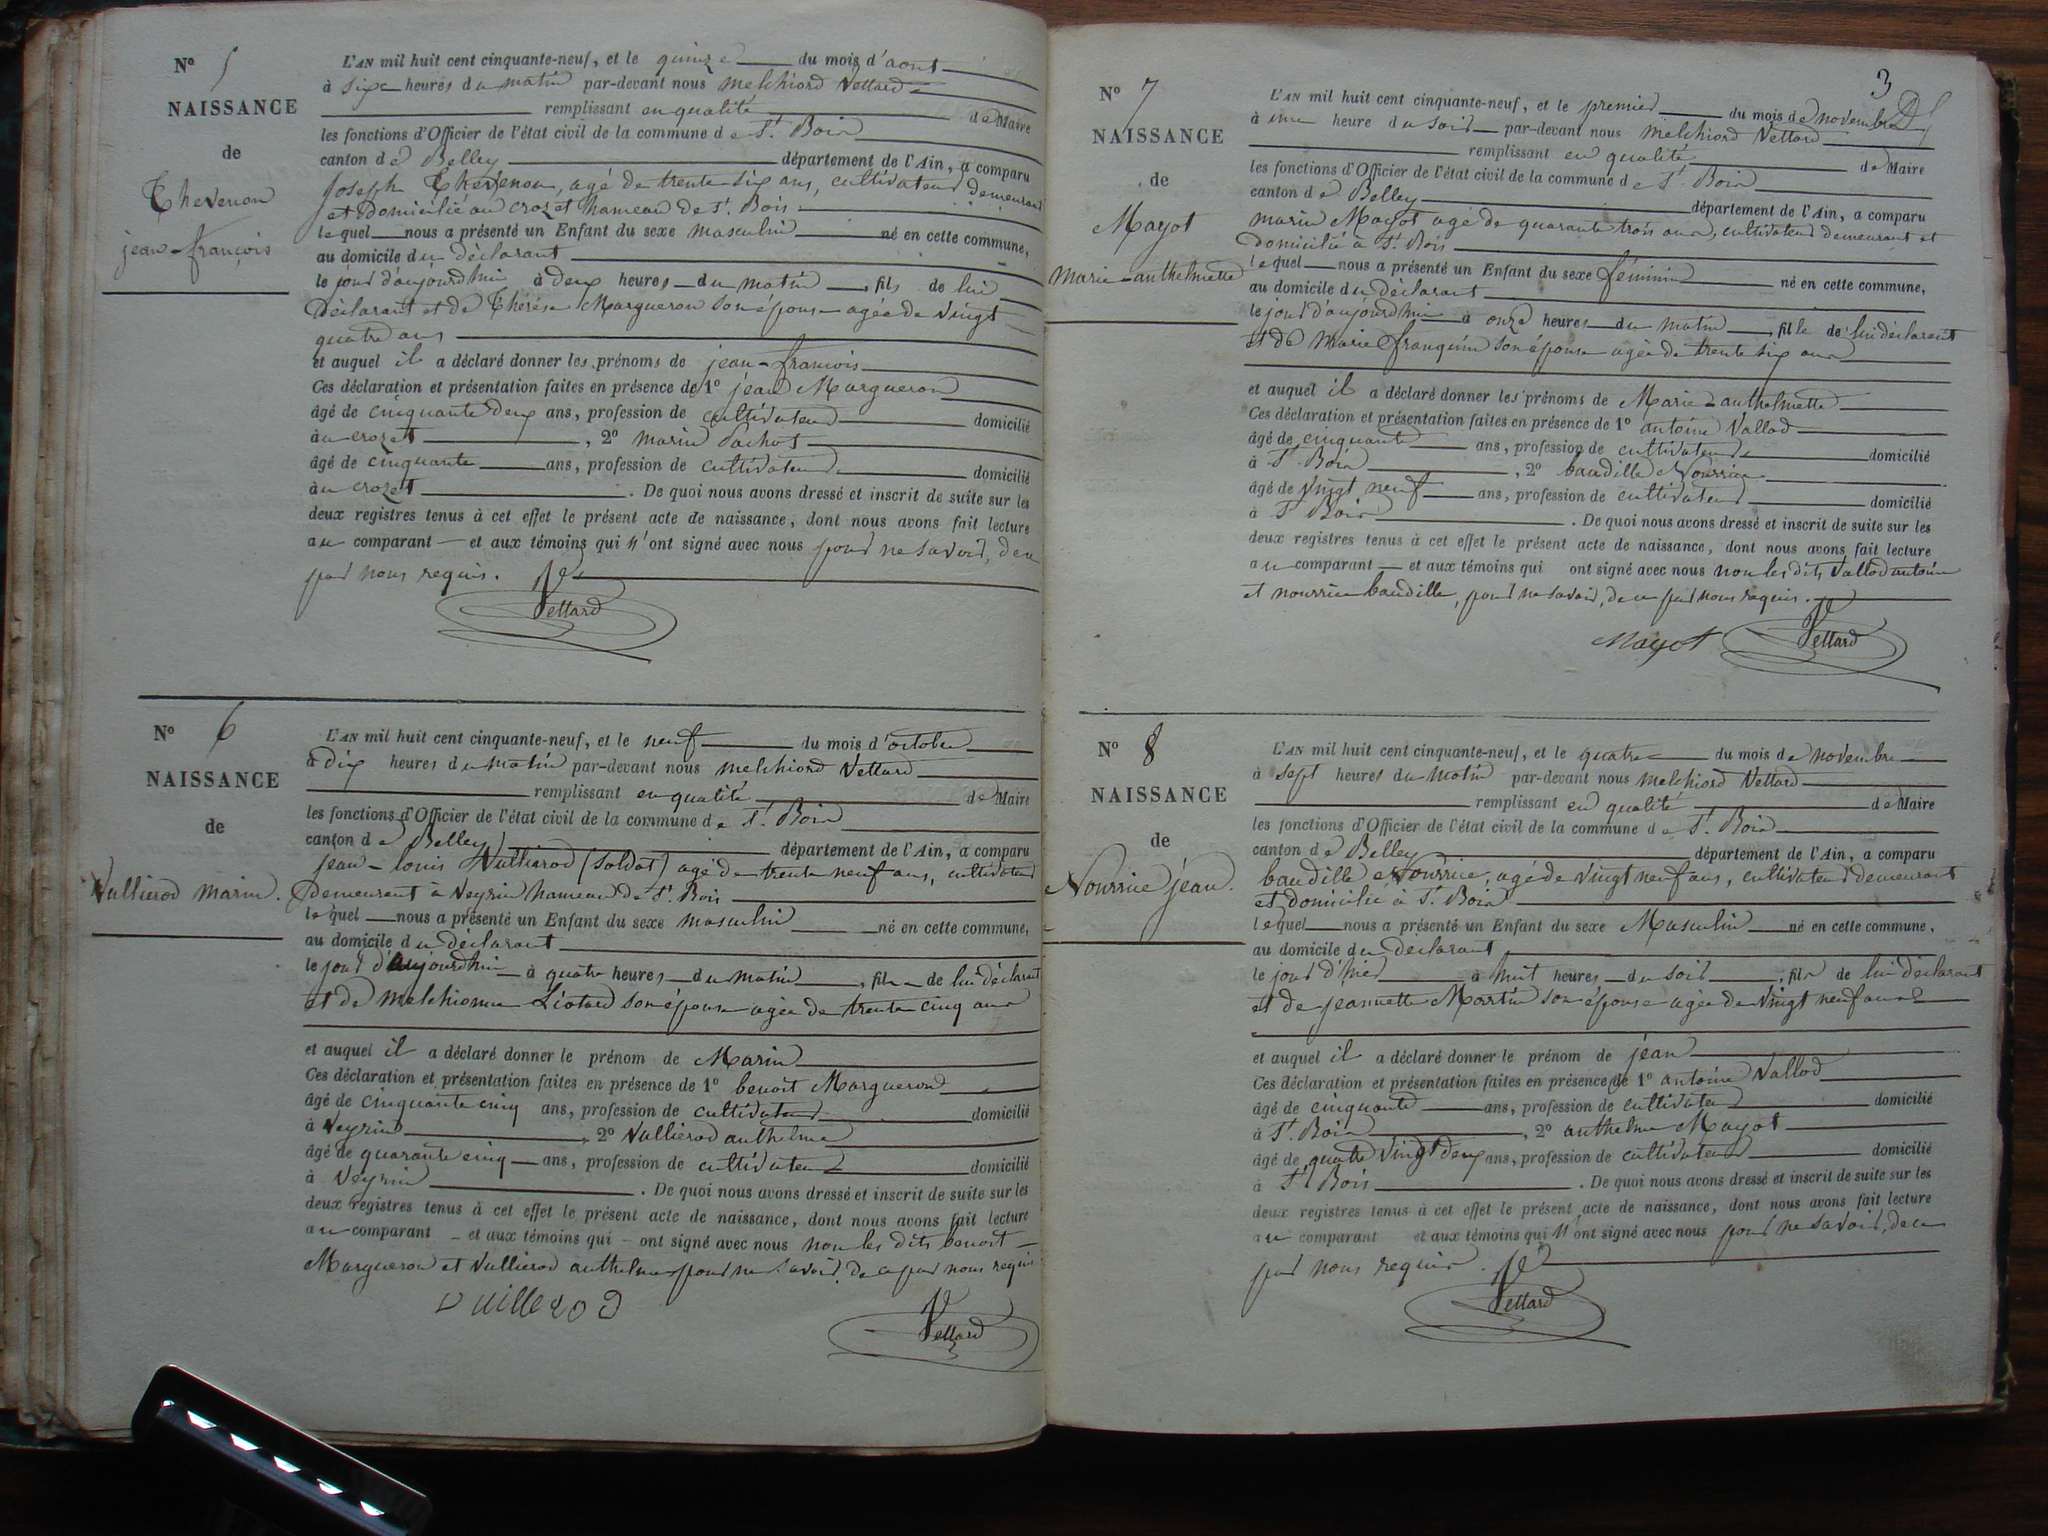 N° 5
NAISSANCE
de
Thevenon
jean-françois
L'AN mil huit cent cinquante-neuf, et le quinze du mois d'aout
à six heures du matin par-devant nous melchiord Vettard
remplissant en qualité de Maire
les fonctions d'Officier de l'état civil de la commune de St. Bois
canton de Belley département de l'Ain, a comparu
Joseph Thevenon, agé de trente six ans, cultivateur demeurant
et domicilié au crozet hameau de St. Bois
lequel nous a présenté un Enfant du sexe masculin né en cette commune,
au domicile du déclarant
le jour d'aujourdhui à deux heures du matin, fils de lui
Déclarant et de Thérèse Margueron son épouse agée de vingt
quatre ans
et auquel il a déclaré donner les prénoms de jean-francois
Ces déclaration et présentation faites en présence de 1° jean Margueron
âgé de cinquante deux ans, profession de cultivateur domicilié
à au crozet, 2° marin Pachot
âgé de cinquante ans, profession de cultivateur domicilié
à au crozet. De quoi nous avons dressé et inscrit de suite sur les
deux registres tenus à cet effet le présent acte de naissance, dont nous avons fait lecture
au comparant et aux témoins qui n'ont signé avec nous pour ne savoir, de ce
par nous requis.
Vettard
N° 6
NAISSANCE
de
Vullierod marin.
L'AN mil huit cent cinquante-neuf, et le neuf du mois d'octobre
à dix heures du matin par-devant nous melchiord Vettard
remplissant en qualité de Maire
les fonctions d'Officier de l'état civil de la commune de St. Bois
canton de Belley département de l'Ain, a comparu
jean-louis Vullierod (soldat) agé de trente neuf ans, cultivateur
Demeurant à Veyrin hameau de St. Bois
lequel nous a présenté un Enfant du sexe masculin né en cette commune,
au domicile du déclarant
le jour d'aujourdhui à quatre heures du matin, fils de lui déclarant
et de melchionne Liotard son épouse agée de trente cinq ans
et auquel il a déclaré donner le prénom de Marin
Ces déclaration et présentation faites en présence de 1° benoit Margueron
âgé de cinquante cinq ans, profession de cultivateur domicilié
à Veyrin, 2° Vullierod anthelme
âgé de quarante cinq ans, profession de cultivateur domicilié
à Veyrin. De quoi nous avons dressé et inscrit de suite sur les
deux registres tenus à cet effet le présent acte de naissance, dont nous avons fait lecture
au comparant et aux témoins qui ont signé avec nous non les dits benoit
Margueron et Vullierod anthelme pour ne savoir, de ce par nous requis
vuillerod
Vettard
3
N° 7
NAISSANCE
de
Mayot
Marie-anthelmette
L'AN mil huit cent cinquante-neuf, et le premier du mois de novembre
à une heure du soir par-devant nous melchiord Vettard
remplissant en qualité de Maire
les fonctions d'Officier de l'état civil de la commune de St. Bois
canton de Belley département de l'Ain, a comparu
marin Mayot agé de quarante trois ans, cultivateur demeurant et
domicilié à St. Bois
lequel nous a présenté un Enfant du sexe féminin né en cette commune,
au domicile du déclarant
le jour d'aujourdhui à onze heures du matin, fille de lui déclarant
et de Marie franquin son épouse agée de trente six ans
et auquel il a déclaré donner les prénoms de Marie-anthelmette
Ces déclaration et présentation faites en présence de 1° antoine Vallod
âgé de cinquante ans, profession de cultivateur domicilié
à St. Bois, 2° baudille Nourrice
âgé de vingt neuf ans, profession de cultivateur domicilié
à St. Bois. De quoi nous avons dressé et inscrit de suite sur les
deux registres tenus à cet effet le présent acte de naissance, dont nous avons fait lecture
au comparant et aux témoins qui ont signé avec nous non les dits Vallod antoine
et nourrice baudille, pour ne savoir, de ce par nous requis.
Mayot Vettard
N° 8
NAISSANCE
de
Nourrice jean.
L'AN mil huit cent cinquante-neuf, et le quatre du mois de novembre
à sept heures du matin par-devant nous melchiord Vettard
remplissant en qualité de Maire
les fonctions d'Officier de l'état civil de la commune de St. Bois
canton de Belley département de l'Ain, a comparu
baudille Nourrice, agé de vingt neuf ans, cultivateur demeurant
et domicilié à St. Bois
lequel nous a présenté un Enfant du sexe Masculin né en cette commune,
au domicile du déclarant
le jour d'hier à huit heures du soir, fils de lui déclarant
et de jeannette Martin son épouse agée de vingt neuf ans
et auquel il a déclaré donner le prénom de jean
Ces déclaration et présentation faites en présence de 1° antoine Vallod
âgé de cinquante ans, profession de cultivateur domicilié
à St. Bois, 2° anthelme Mayot
âgé de quatre vingt deux ans, profession de cultivateur domicilié
à St. Bois. De quoi nous avons dressé et inscrit de suite sur les
deux registres tenus à cet effet le présent acte de naissance, dont nous avons fait lecture
au comparant et aux témoins qui n'ont signé avec nous pour ne savoir, de ce
par nous requis.
Vettard